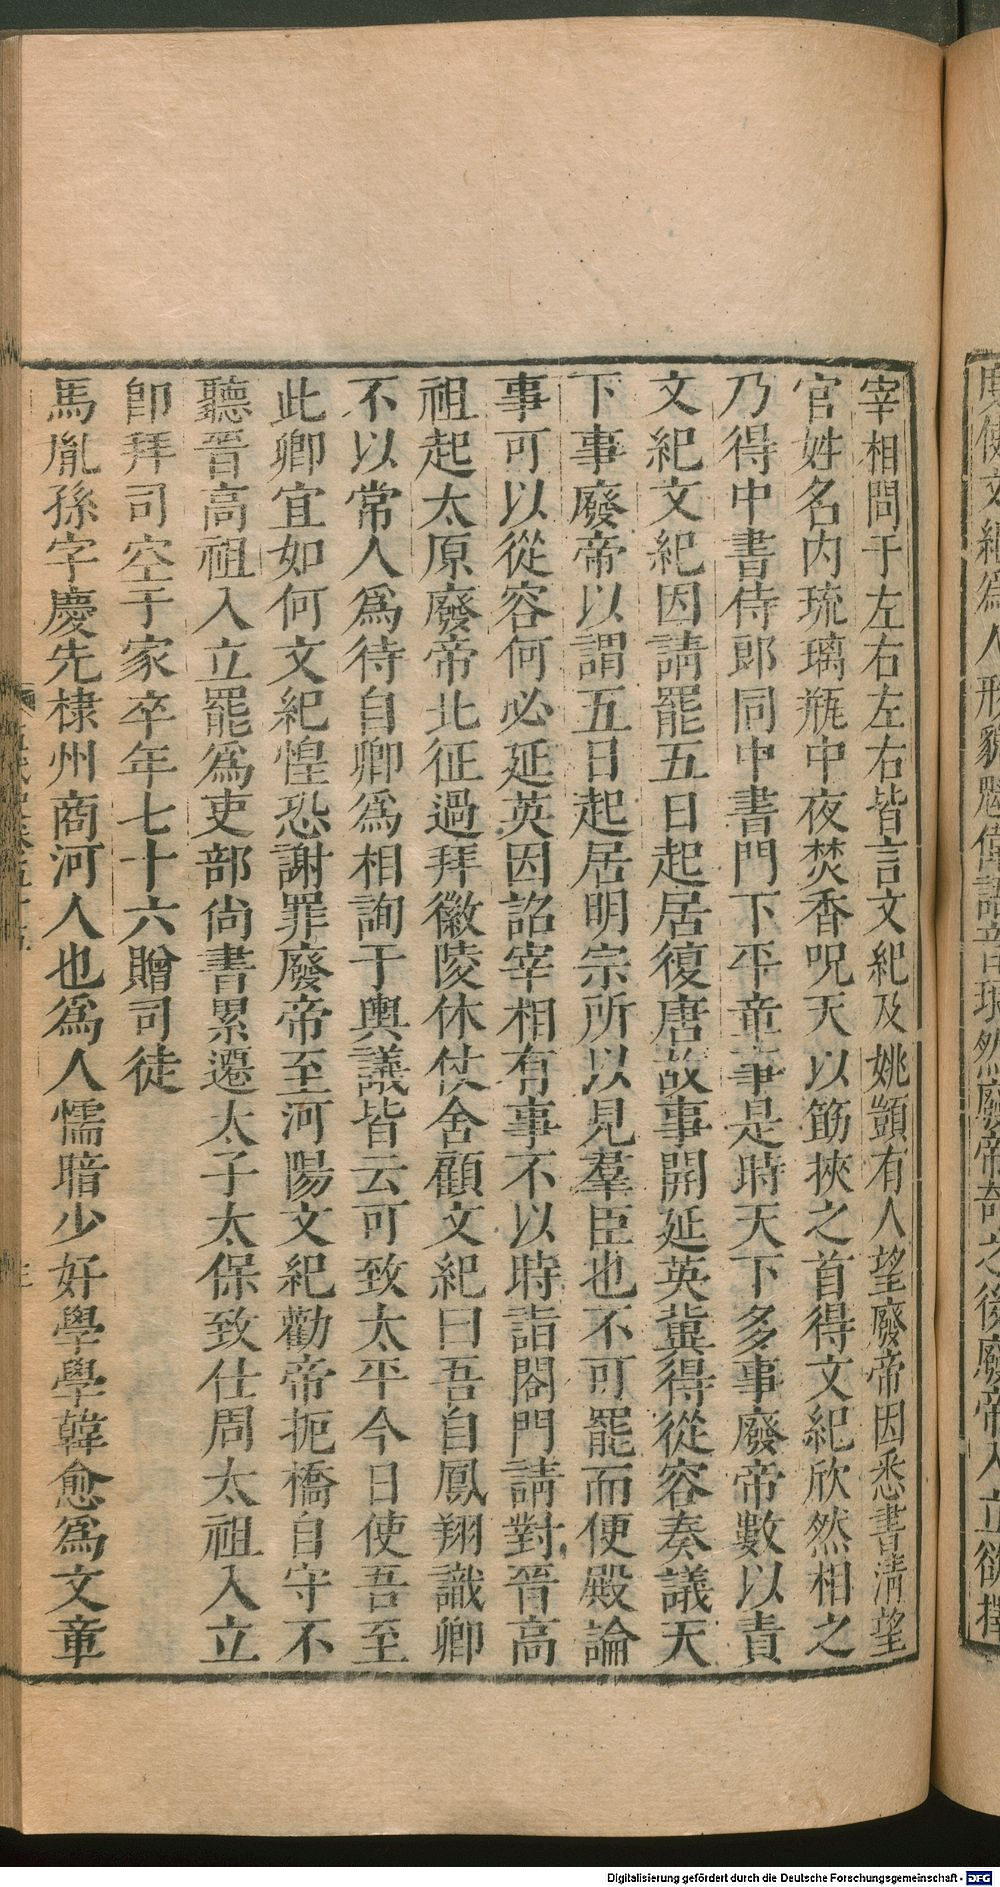 宰相問于左右左右皆言文紀及姚顗有人望廢帝因悉書清望
官姓名内琉璃瓶中夜焚香呪天以筯挾之首得文紀欣然相之
乃得中書侍郎同中書門下平章事是時天下多事廢帝數以責
文紀文紀因請罷五日起居復唐故事開延英冀得從容奏議天
下事廢帝以謂五日起居明宗所以見羣臣也不可罷而便殿論
事可以從容何必延英因詔宰相有事不以時詣閤門請對晉高
祖起太原廢帝北征過拜徽陵休仗舍顧文紀曰吾自鳳翔識卿
不以常人爲待自卿爲相詢于輿議皆云可致太平今日使吾至
此卿宜如何文紀惶恐謝罪廢帝至河陽文紀勸帝扼橋自守不
聽晉高祖入立罷爲吏部尚書累遷太子太保致仕周太祖入立
卽拜司空于家卒年七十六贈司徒
馬胤孫字慶先棣州商河人也爲人懦暗少好學學韓愈爲文章
Digitalisierung gefördert durch die Deutsche Forschungsgemeinschaft - DFG